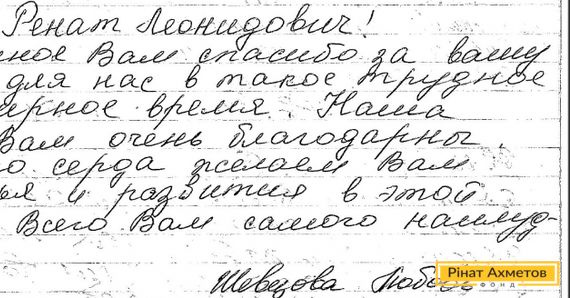 Ренат Леонидович!
ное Вам спасибо за вашу
для нас в такое трудное
рное время. Наша
Вам очень благодарны.
о серда желаем Вам
ья и развития в этой
Всего Вам самого наилуч-
Шевцова
Рінат Ахметов
ФОНД